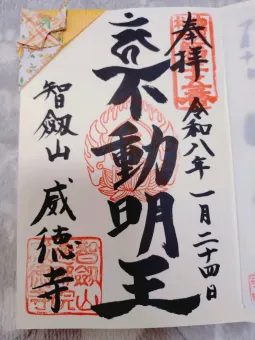 奉拝
令和八年一月二十四日
不動明王
智劔山
威徳寺